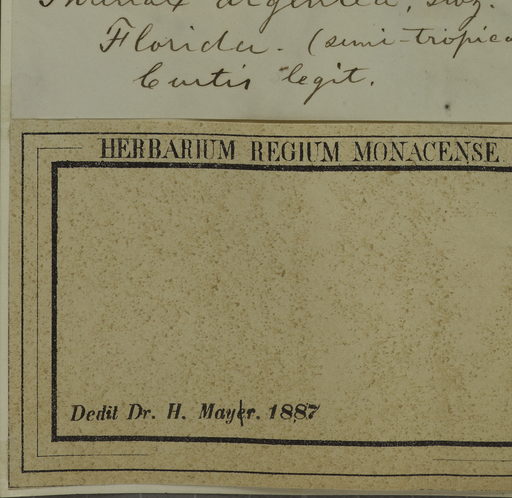 Thrinax argentea, swz.
Florida. (semi-tropica
Curtis legit.
HERBARIUM REGIUM MONACENSE
Dedit Dr. H. Mayr. 1887